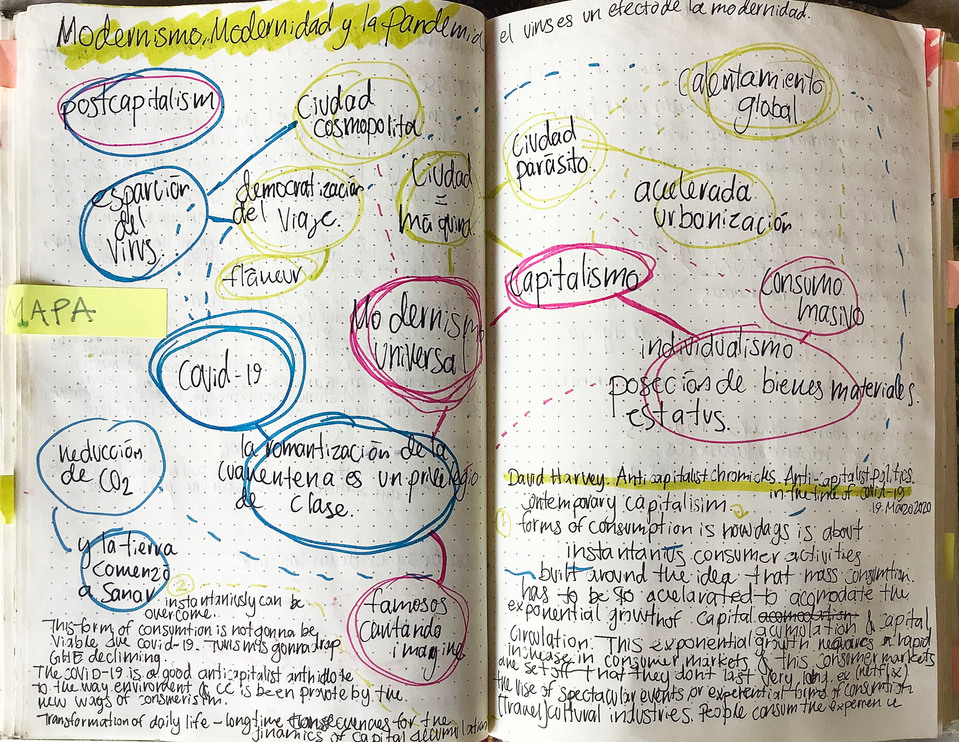 Modernismo, Modernidad y la Pandemia
el virus es un efecto de la modernidad.
postcapitalism
Ciudad
cosmopolita
esparción
del
virus.
democratización
del viaje.
flâneur
Ciudad
=
máquina
MAPA
Covid-19
Modernismo
universal
la romantización de la
cuarentena es un privilegio
de clase.
reducción
de CO2
y la tierra
comenzó
a sanar
famosos
cantando
imagine
2
instantaniusly can be
overcome.
This form of consumtion is not gonna be
viable due covid-19. Turismts gonna drop
declinming.
The COVID-19 is a good anticapitalist anthidote
to the way enviroment & CC is been provote by the
new ways of consmerism.
Transformation of daily life - longtime for the
dinamics of capital accumulation
Calentamiento
global.
Ciudad
parásito.
acelerada
urbanización
Capitalismo
Consumo
masivo
individualismo
poseción de bienes materiales
estatus.
David Harvey. Anticapitalist chronicks. Anti-capitalist politics
in the time of covid-19
19. Marzo 2020
1
ontemporary capitalisim
forms of consumption is nowdays is about
instantanius consumer activities
built around the idea that mass consumtion
has to be so acelarated to acomodate the
exponential growth of capital acomodation
acumulation & capital
circulation. This exponential growth requieres a rapid
increase in consumer markets & this consumer markets
are set off that they don't last very long. ex (netflix)
the use of spectacular events or experential forms of consumtion
(travel) cultural industries. People consum the experience